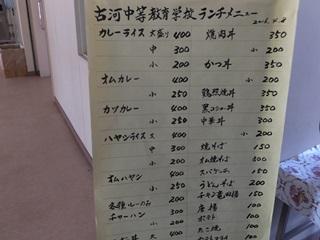 古河中等教育学校ランチメニュー
カレーライス 大盛り 400 焼肉丼 350
中 300 小 200
小 200 かつ丼 350
オムカレー 400 小
小 250 鶏照焼丼 350
カツカレー 400 黒コショー丼 350
小 250 中華丼 300
ハヤシライス 大 400 小 200
中 300 焼そば 150
小 200 オム焼そば 300
オムハヤシ 400 スパゲッティ 150
小 250 うどん そば 200
各種ルーのみ 200 チキン竜田揚 150
チャーハン 300 唐揚 100
小 200 ポテト 100
大 400 たこ焼 100